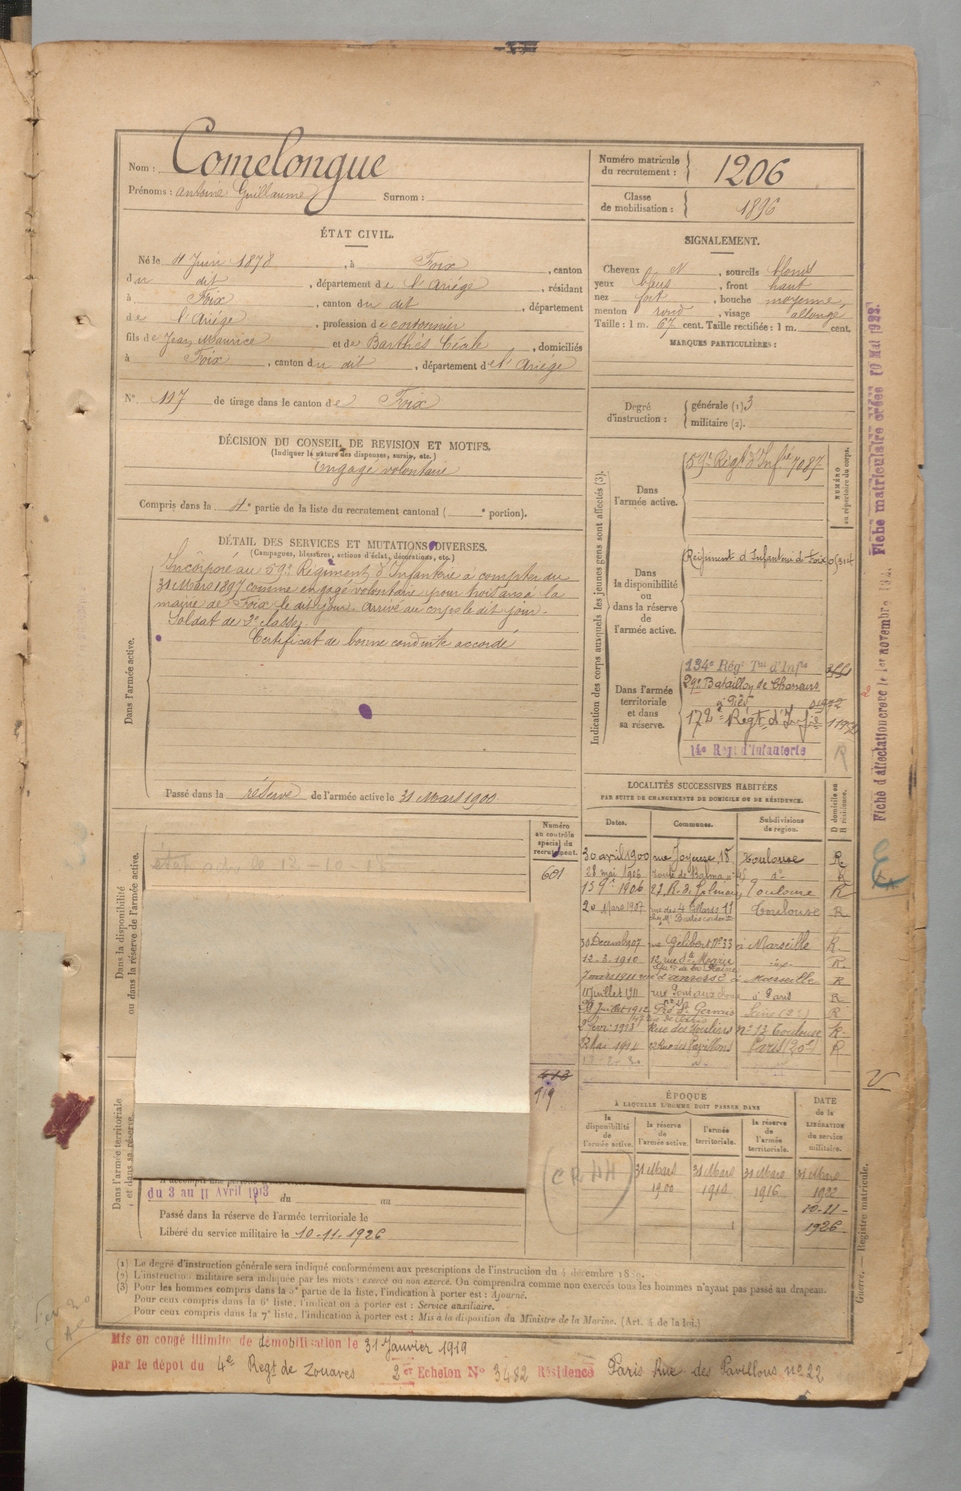 Nom : Comelongue
Prénoms : Antoine Guillaume Surnom :
Numéro matricule du recrutement : 1206
Classe de mobilisation : 1896
ÉTAT CIVIL.
Né le 4 Juin 1878, à Foix, canton
du dit, département de l'Ariège, résidant
à Foix, canton du dit, département
de l'Ariège, profession de cordonnier
fils de Jean Maurice et de Barthés Cécile, domiciliés
à Foix, canton du dit, département de l'Ariège
N° 117 de tirage dans le canton de Foix
SIGNALEMENT.
Cheveux, sourcils blonds
yeux bleus, front haut
nez fort, bouche moyenne,
menton rond, visage allongé
Taille : 1 m. 67 cent. Taille rectifiée : 1 m. cent.
MARQUES PARTICULIÈRES :
Degré d'instruction : générale (1). 3
militaire (2).
DÉCISION DU CONSEIL DE REVISION ET MOTIFS.
(Indiquer la nature des dispenses, sursis, etc.)
Engagé volontaire
Compris dans la 4e partie de la liste du recrutement cantonal ( e portion).
DÉTAIL DES SERVICES ET MUTATIONS DIVERSES.
(Campagnes, blessures, actions d'éclat, décorations, etc.)
Dans l'armée active.
Incorporé au 59e Régiment d'Infanterie à compter du
31 Mars 1897 comme engagé volontaire pour trois ans à la
mairie de Foix le dit jour. Arrivé au corps le dit jour.
Soldat de 2e classe.
Certificat de bonne conduite accordé
Passé dans la réserve de l'armée active le 31 Mars 1900
Numéro au contrôle spécial du recrutement.
601
Dans la disponibilité ou dans la réserve de l'armée active.
Dans l'armée territoriale et dans sa réserve.
413
919
du 3 au 11 Avril 1913 du au
Passé dans la réserve de l'armée territoriale le
Libéré du service militaire le 10.11.1926
Indication des corps auxquels les jeunes gens sont affectés (3).
NUMÉRO au répertoire du corps.
Dans l'armée active.
59e Regt d'Infie 7087
Dans la disponibilité ou dans la réserve de l'armée active.
Régiment d'Infanterie de Foix
Dans l'armée territoriale et dans sa réserve.
134e Régt Tal d'Infie
29e Bataillon de Chasseurs
172e Regt d'Infie
14e Regt d'Infanterie
R
LOCALITÉS SUCCESSIVES HABITÉES
PAR SUITE DE CHANGEMENTS DE DOMICILE OU DE RÉSIDENCE.
Dates. Communes. Subdivisions de région. D domicile ou R résidence.
30 avril 1900 rue Joyeuse 18 Toulouse R
28 mai 1906 route de Balma n° 45 do R
1906 Toulouse R
20 Mars 1907 rue des 4 Billards 11 Toulouse R
30 Décemb 1907 rue Gelibert N° 33 à Marseille R
12-3-1910 12 rue Ste Marie R
7 mars 1911 à Marseille R
11 juillet 1911 à Paris R
Juillet 1912 St Gervais R
1913 Rue des Moulins n° 13 Toulouse R
Mai 1914 Rue des Pavillons Paris (20e) R
ÉPOQUE
À LAQUELLE L'HOMME DOIT PASSER DANS
la disponibilité de l'armée active. la réserve de l'armée active. l'armée territoriale. la réserve de l'armée territoriale.
DATE de la LIBÉRATION du service militaire.
31 Mars 1900 31 Mars 1910 31 Mars 1916 31 Mars 1922
10-11-1926
(1) Le degré d'instruction générale sera indiqué conformément aux prescriptions de l'instruction du 4 décembre
(2) L'instruction militaire sera indiquée par les mots : exercé ou non exercé. On comprendra comme non exercés tous les hommes n'ayant pas passé au drapeau.
(3) Pour les hommes compris dans la 5e partie de la liste, l'indication à porter est : Ajourné.
Pour ceux compris dans la 6e liste, l'indication à porter est : Service auxiliaire.
Pour ceux compris dans la 7e liste, l'indication à porter est : Mis à la disposition du Ministre de la Marine. (Art. 4 de la loi.)
Mis en congé illimité de démobilisation le 31 Janvier 1919
par le dépôt du 4e Regt de Zouaves 2e Echelon N° 3482 Résidence Paris Rue des Pavillons n° 22
Guerre. — Registre matricule.
Fiche matriculaire créée 10 Mai 1922.